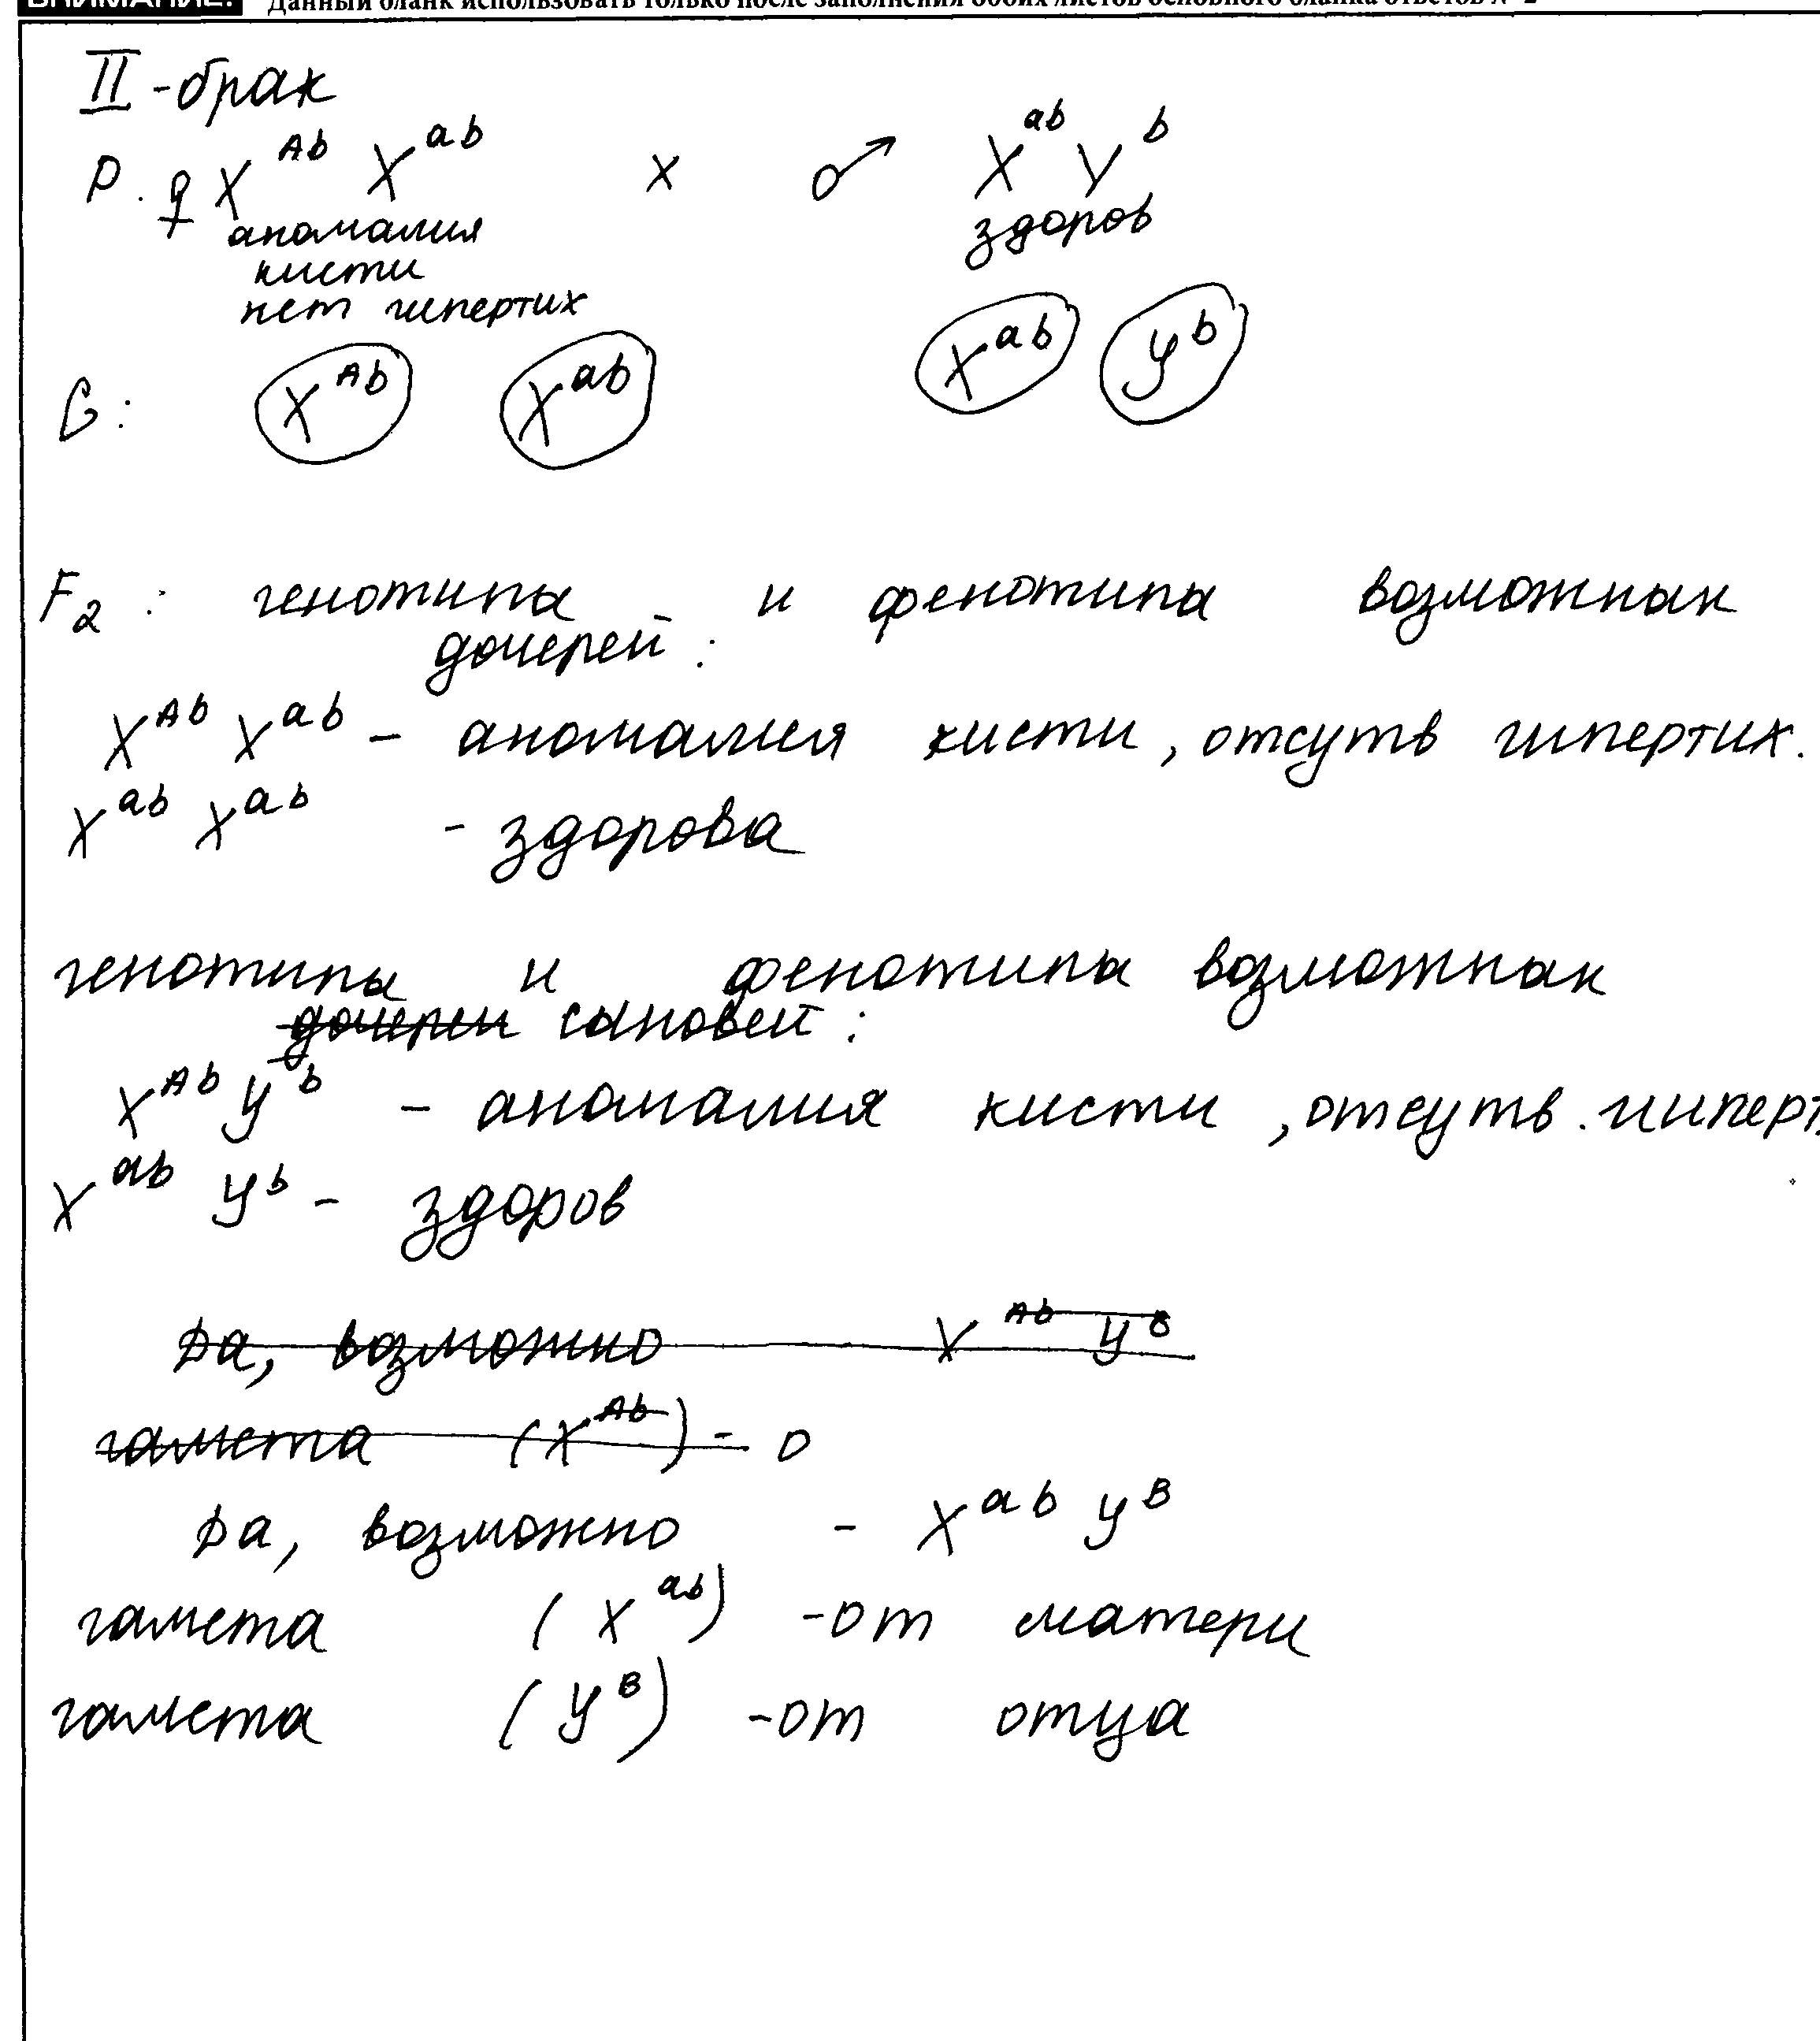 ВНИМАНИЕ! Данный бланк использовать только после заполнения обоих листов основного бланка ответов № 2
II - брак
P. ♀ X^Ab X^ab x ♂ X^ab Y^b
аномалия здоров
кисти
нет гипертих
G: X^Ab X^ab X^ab Y^b
F2 : генотипы и фенотипы возможных
дочерей :
X^Ab X^ab - аномалия кисти, отсутв гипертих.
X^ab X^ab - здорова
генотипы и фенотипы возможных
дочерей сыновей :
X^Ab Y^b - аномалия кисти, отсутв. гиперт
X^ab Y^b - здоров
Да, возможно X^Ab Y^B
гамета (X^Ab) - о
Да, возможно - X^ab Y^B
гамета (X^ab) - от матери
гамета (Y^B) - от отца